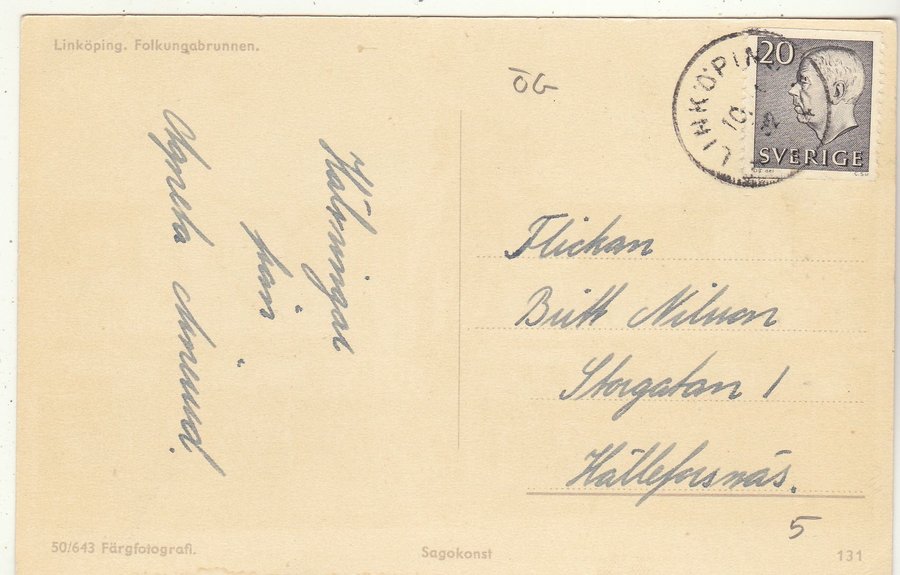 Linköping. Folkungabrunnen.
ÖG
LINKÖPING
10
20
SVERIGE
Hälsningar
från
Agneta
Flickan
Britt Nilsson
Storgatan 1
Hälleforsnäs.
5
50/643 Färgfotografi.
Sagokonst
131